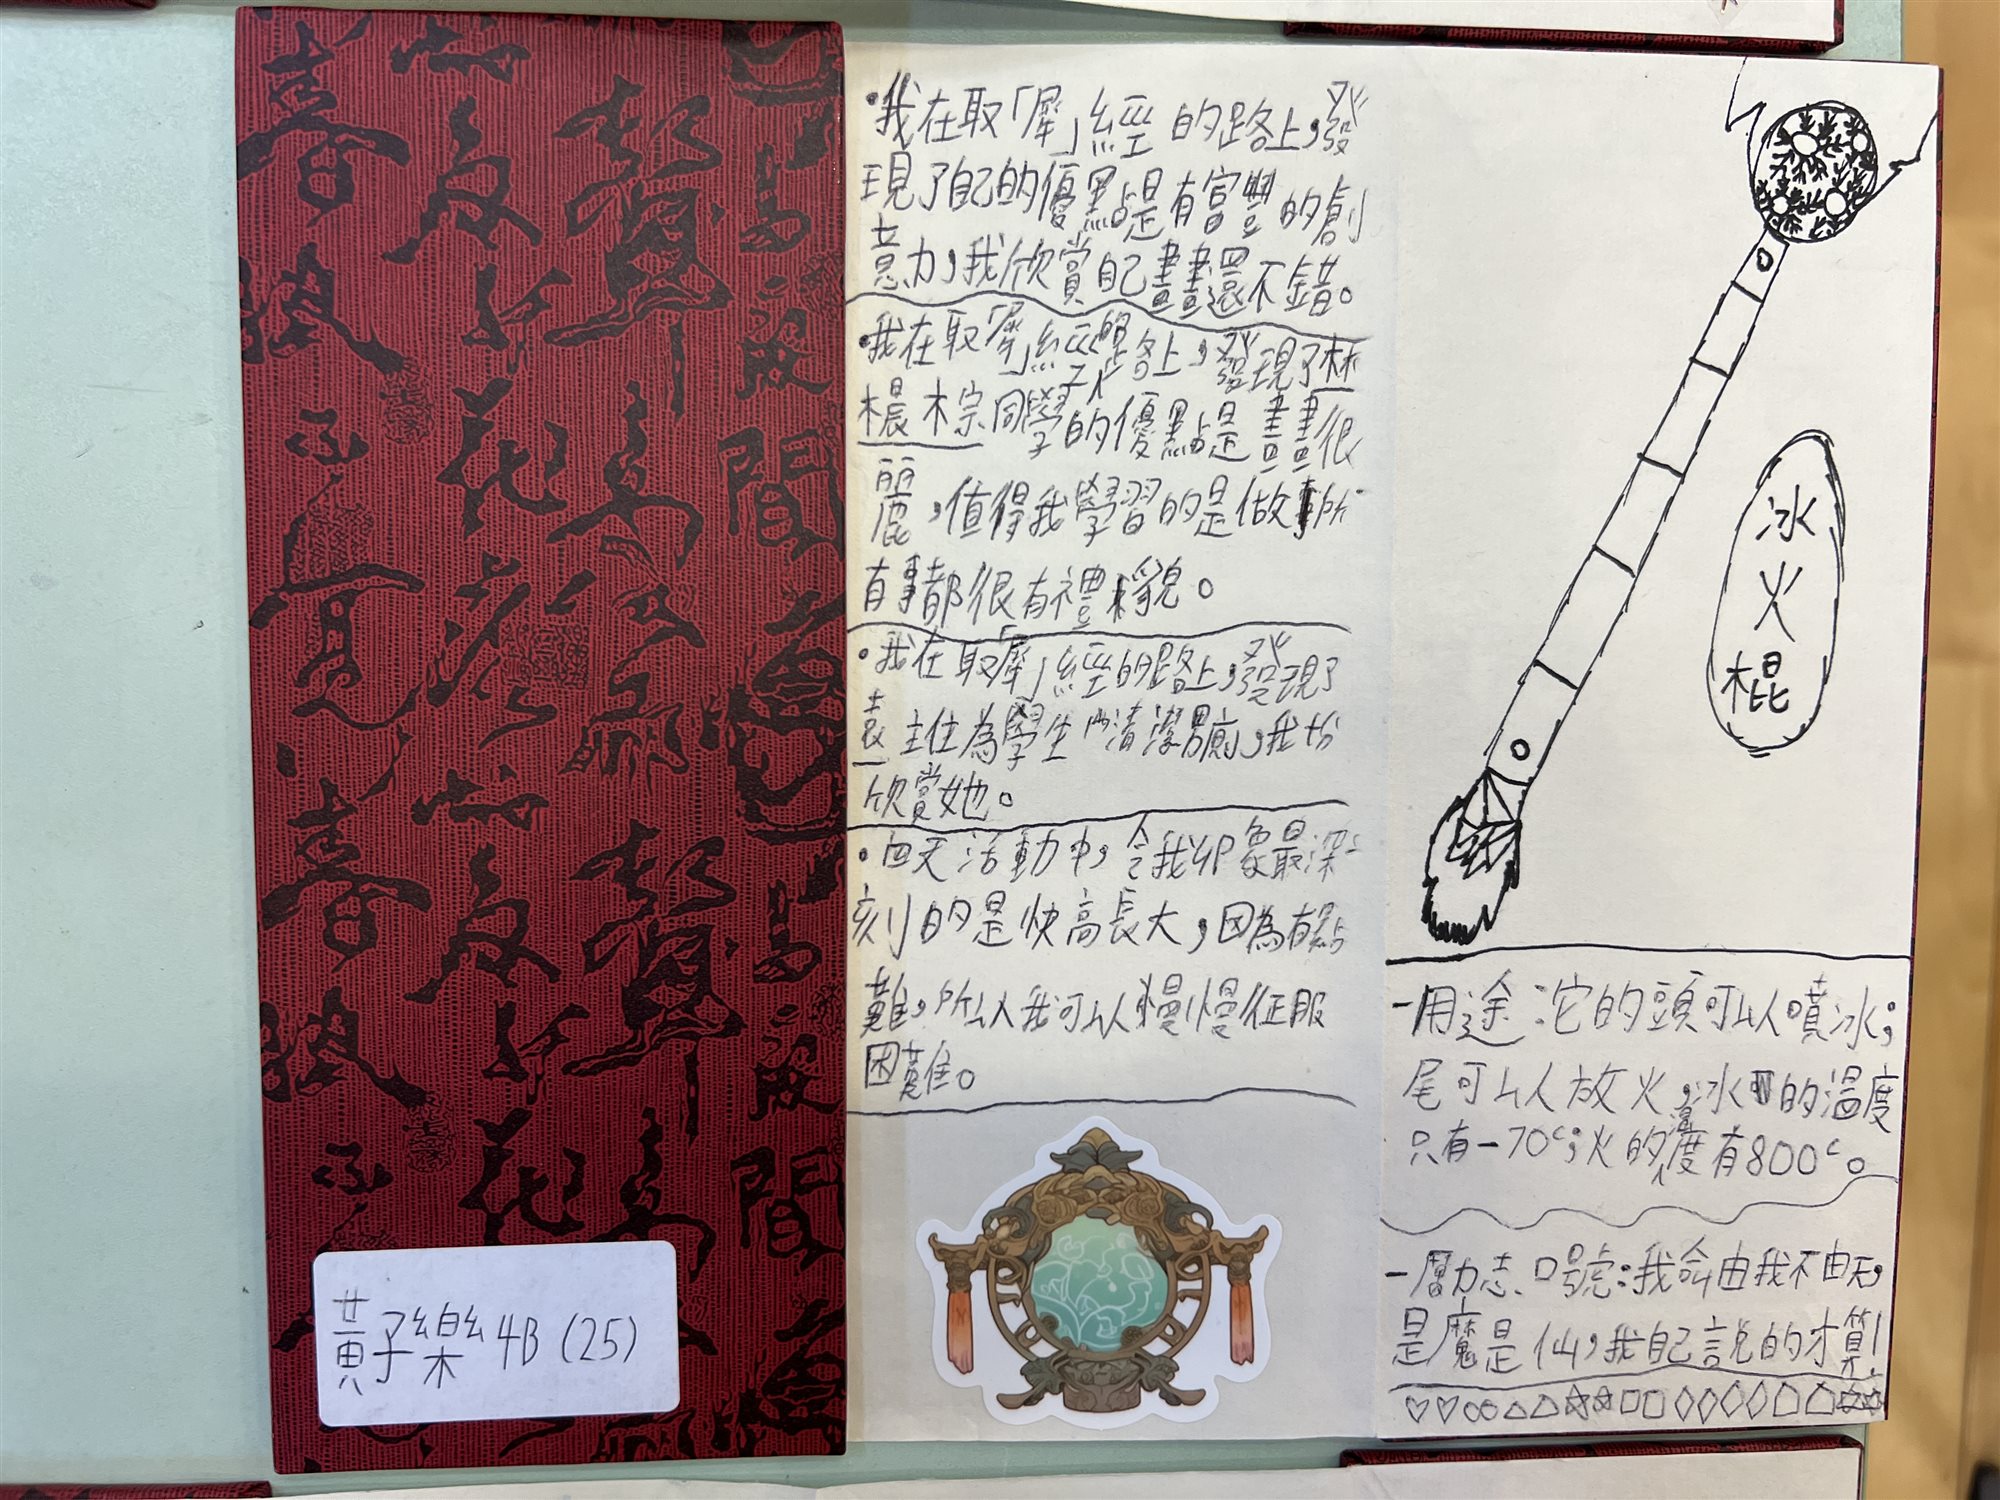 黃子樂 4B (25)
•我在取「犀」經的路上，發
現了自己的優點是有富豐的創
意力，我欣賞自己畫畫還不錯。
•我在取「犀」經的路上，發現了林
樑棕同學的優點是畫畫很
麗，值得我學習的是做事所
有事都很有禮貌。
•我在取「犀」經的路上，發現了
袁主任為學生們清潔男廁，我十分
欣賞她。
•四天活動中，令我印象最深
刻的是快高長大，因為有點
難，所以我可以慢慢征服
困難。
冰火棍
一用途：它的頭可以噴冰；
尾可以放火，冰的溫度
只有-70°c；火的溫度有800°c。
一勵志口號：我命由我不由天，
是魔是仙，我自己說的才算！